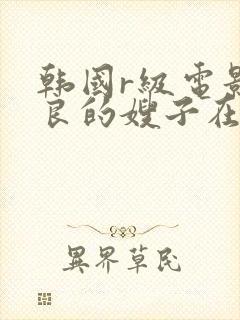 韩国r级电影
良的嫂子在
異界草民